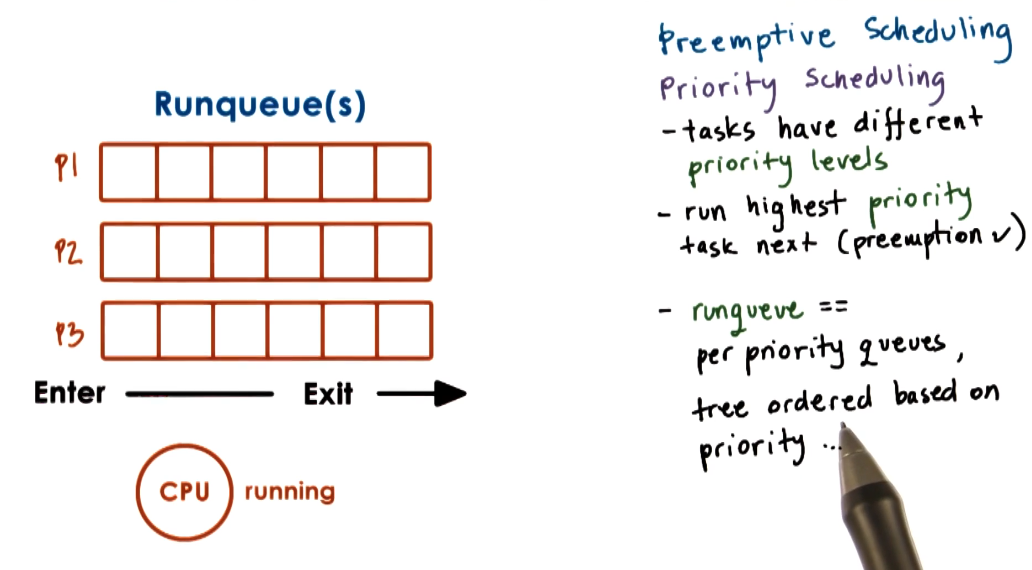 Runqueue(s)
P1
P2
P3
Enter
Exit
CPU
running
Preemptive Scheduling
Priority Scheduling
- tasks have different
priority levels
- run highest priority
task next (preemption ✓)
- runqueue ==
per priority queues,
tree ordered based on
priority ...